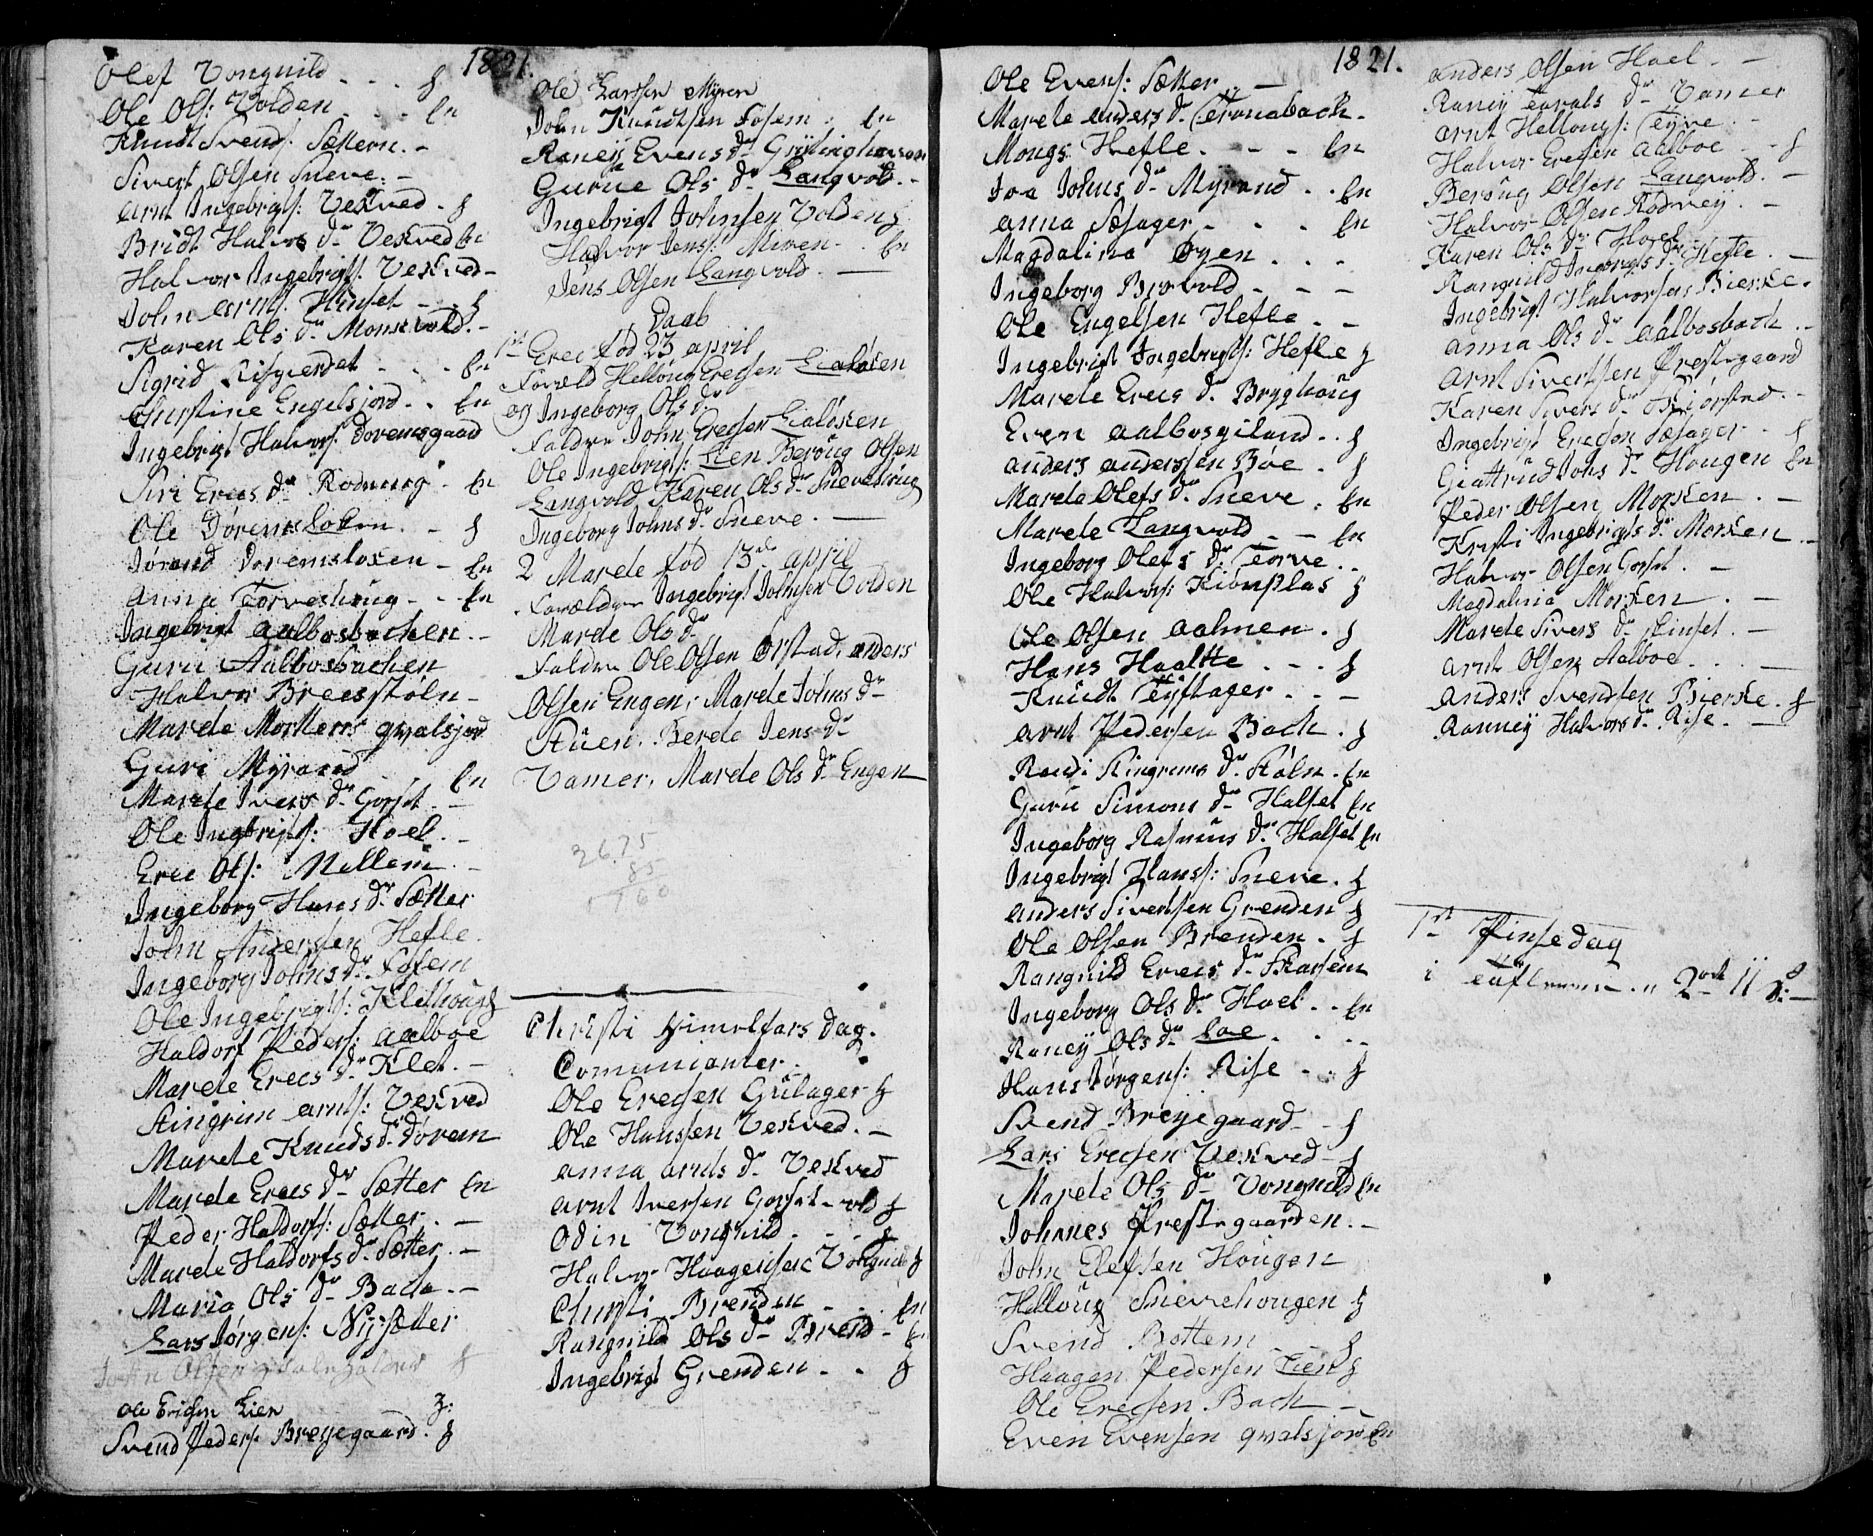 1821.
Olef Vongnild - - - ʒ
Ole Ols: Volden - - - En
Knudt Svends: Sættern. -
Sivert Olsen Sneve. -
Arnt Ingebrigts: Vekved - ʒ
Bridt Halvors dr Vekved En
Halvor Ingebrigts: Vekved -
John Arnts: Hinset - - ʒ
Karen Ols dr Monsevold. -
Sigrid Risgierdet - - - En
Christine Engelsjord - - En
Ingebrigt Halvors: Dorensgaard
Siri Erecs dr Rodning - En
Ole Døremsløken. - ʒ
Jørand Doremsloken - En
Anna Torveshoug - - En
Ingebrigt Aalbosbachen. -
Guru Aalbosbachen
Halvor Breesstøln -
Marde Mortens qvalsjord
Guri Myraad - En
Marde Ivers dr Gorset. -
Ole Ingbrigts: Hoel. -
Erec Ols: Mellem -
Ingeborg Hans dr Sætter
John Andersen Hefle.
Ingeborg Johns dr Fosem
Ole Ingebrigts: Klethoug ʒ
Haldorf Peders: Aalboe
Marde Erecs dr Klet. -
Stingrim Arnts: Vekved
Marde Knuds dr Dørem
Marde Erecs dr Sætter En
Peder Haldorfs: Sætter. -
Marde Haldorfs dr Sætter. -
Maria Ols dr Bach. -
Lars Jørgens: Nysætter
John Olsen ʒ
Ole Ericsen Lien ʒ:
Svend Peders: Breyegaard. ʒ
Ole Larssen Myren
John Knudtsen Fosem. En
Raney Evens dr Grytinghaugen
Gurue Ols dr Langvold. -
Ingebrigt Johnsen Volden ʒ
Halvor Jens: Miren - - En
Jens Olsen Langvold. -
Daab
1ste Erec fød 23 april
Foræld Helloug Erecsen Lialøken
og Ingeborg Ols dr
Faldre John Erecsen Lialøken
Ole Ingebrigts: Lien Beroug Olsen
Langvold Karen Ols dr Snevesbrug
Ingeborg Johns dr Sneve. -
2 Marde fød 13de april
Forældre Ingebrigt Johnsen Volden
Marde Ols dr
Faldre Ole Olsen Orstad, Anders
Olsen Engen, Marde Johns dr
Stuen, Berde Jens dr
Vamer, Marde Ols dr Engen
26.75
85
160
Christi Himelfars dag.
Comunianter.
Ole Erecsen Gulager ʒ
Ole Hanssen Vekved. -
Anna Arnts dr Vekved
Arnt Iversen Gorset-vold ʒ
Odin Vongnild. - - ʒ
Halvor Haagensen Vongnild ʒ
Christi Brenden - - En
Rangnild Ols dr Brend - En
Ingebrigt Grenden - - ʒ
1821.
Ole Evens: Sætter -
Marde Anders dr Tronabach -
Mongs Hefle. - - - En
Joa Johns dr Myraad - - En
Anna Sæsager - - - En
Magdalina Øyen - - -
Ingeborg Brovold - - -
Ole Engelsen Hefle. - -
Ingebrigt Ingebrigts: Hefle ʒ
Marde Erecs dr Brygghoug
Even Aalbosgiland. - ʒ
Anders Anderssen Bøe. ʒ
Marde Olefs dr Sneve. En
Marde Langvold - - En
Ingeborg Olefs dr Torve. -
Ole Halvors: Kionsplas ʒ
Ole Olsen Aalmen. ʒ
Hans Haaltte - - - ʒ
Knudt Teyslager - - -
Arnt Pedersen Bach. ʒ
Randi Stingrims dr Støln. En
Guru Simons dr Halset En
Ingeborg Rasmus dr Halset En
Ingebrigt Hanss: Sneve. ʒ
Anders Sivertsen Grenden ʒ
Ole Olsen Brenden. ʒ
Rangnild Erecs dr Skarsem
Ingeborg Ols dr Hoel - - En
Raney Ols dr Loe - - -
Hans Jørgens: Rise - - ʒ
Svend Breyegaard - - ʒ
Lars Erecsen Vekved - ʒ
Marde Ols dr Vongnild En
Johannes Prestegaarden. -
John Elefsen Hougen
Helloug Snevehougen ʒ
Svend Bottem ʒ
Haagen Pedersen Lien ʒ
Ole Erecsen Bach -
Even Evensen qvalsjord En
Anders Olsen Hoel. -
Raney Torvals dr Vamer
Arnt Hellougs: Teyve. -
Halvor Erecsen Aalboe - - ʒ
Beroug Olsen Langvold. -
Halvor Olsen Rodvey. -
Karen Ols dr Hoel
Rangnild Ingbrigts dr Hefle. -
Ingebrigt Halvorsen Bierke.
Anna Ols dr Aalbosbach. -
Arnt Sivertsen Prestegaard
Karen Sivers dr Skiørstad. -
Ingebrigt Erecsen Sæsager. - ʒ
Giertrud Johs dr Hougen En
Peder Olsen Morken. -
Kristi Ingebrigts dr Morken -
Halvor Olsen Gorset. -
Magdalina Morken. -
Marde Sivers dr Hinset. -
Arnt Olsen Aalboe. - -
Anders Svendsen Bierke. ʒ
Ranney Halvors dr Rise. -
1ste Pinsedag
i
2 11